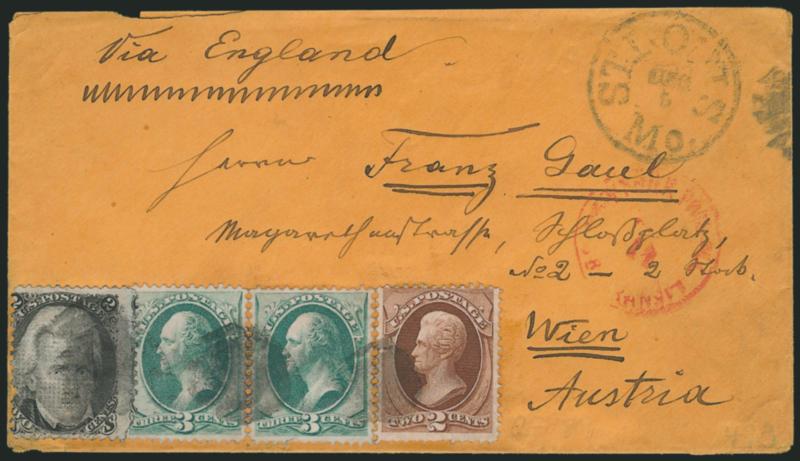 Via England
ST. LOUIS
DEC
5
Mo.
Herrn Franz Gaul
Margarethenstrasse, Schloßplatz,
No 2 – 2 Stock.
Wien
Austria
U.S. POSTAGE
2 2
TWO CENTS
U.S. POSTAGE
THREE 3 CENTS
U.S. POSTAGE
THREE 3 CENTS
U.S. POSTAGE
TWO 2 CENTS